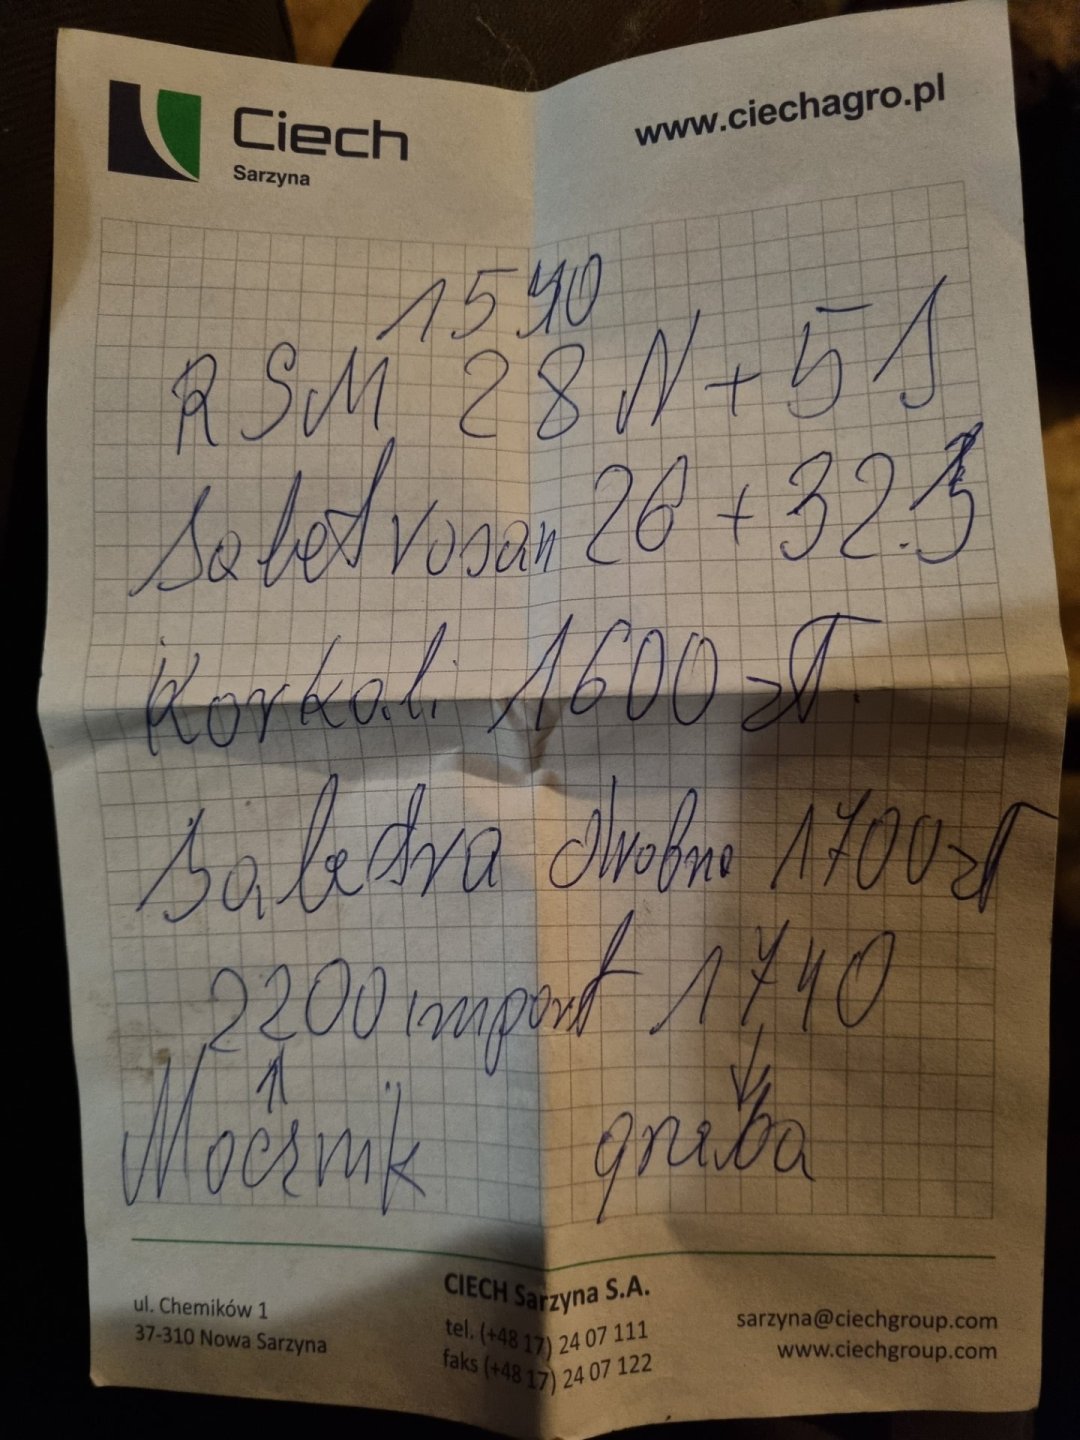 Ciech
Sarzyna
www.ciechagro.pl
1540
RSM 28N+5S
Saletrosan 26+32.5
Korkali 1600 zł.
Saletra drobna 1700 zł
2200 import 1740
↑ ↓
Mocznik gruba
CIECH Sarzyna S.A.
ul. Chemików 1
37-310 Nowa Sarzyna
tel. (+48 17) 24 07 111
faks (+48 17) 24 07 122
sarzyna@ciechgroup.com
www.ciechgroup.com